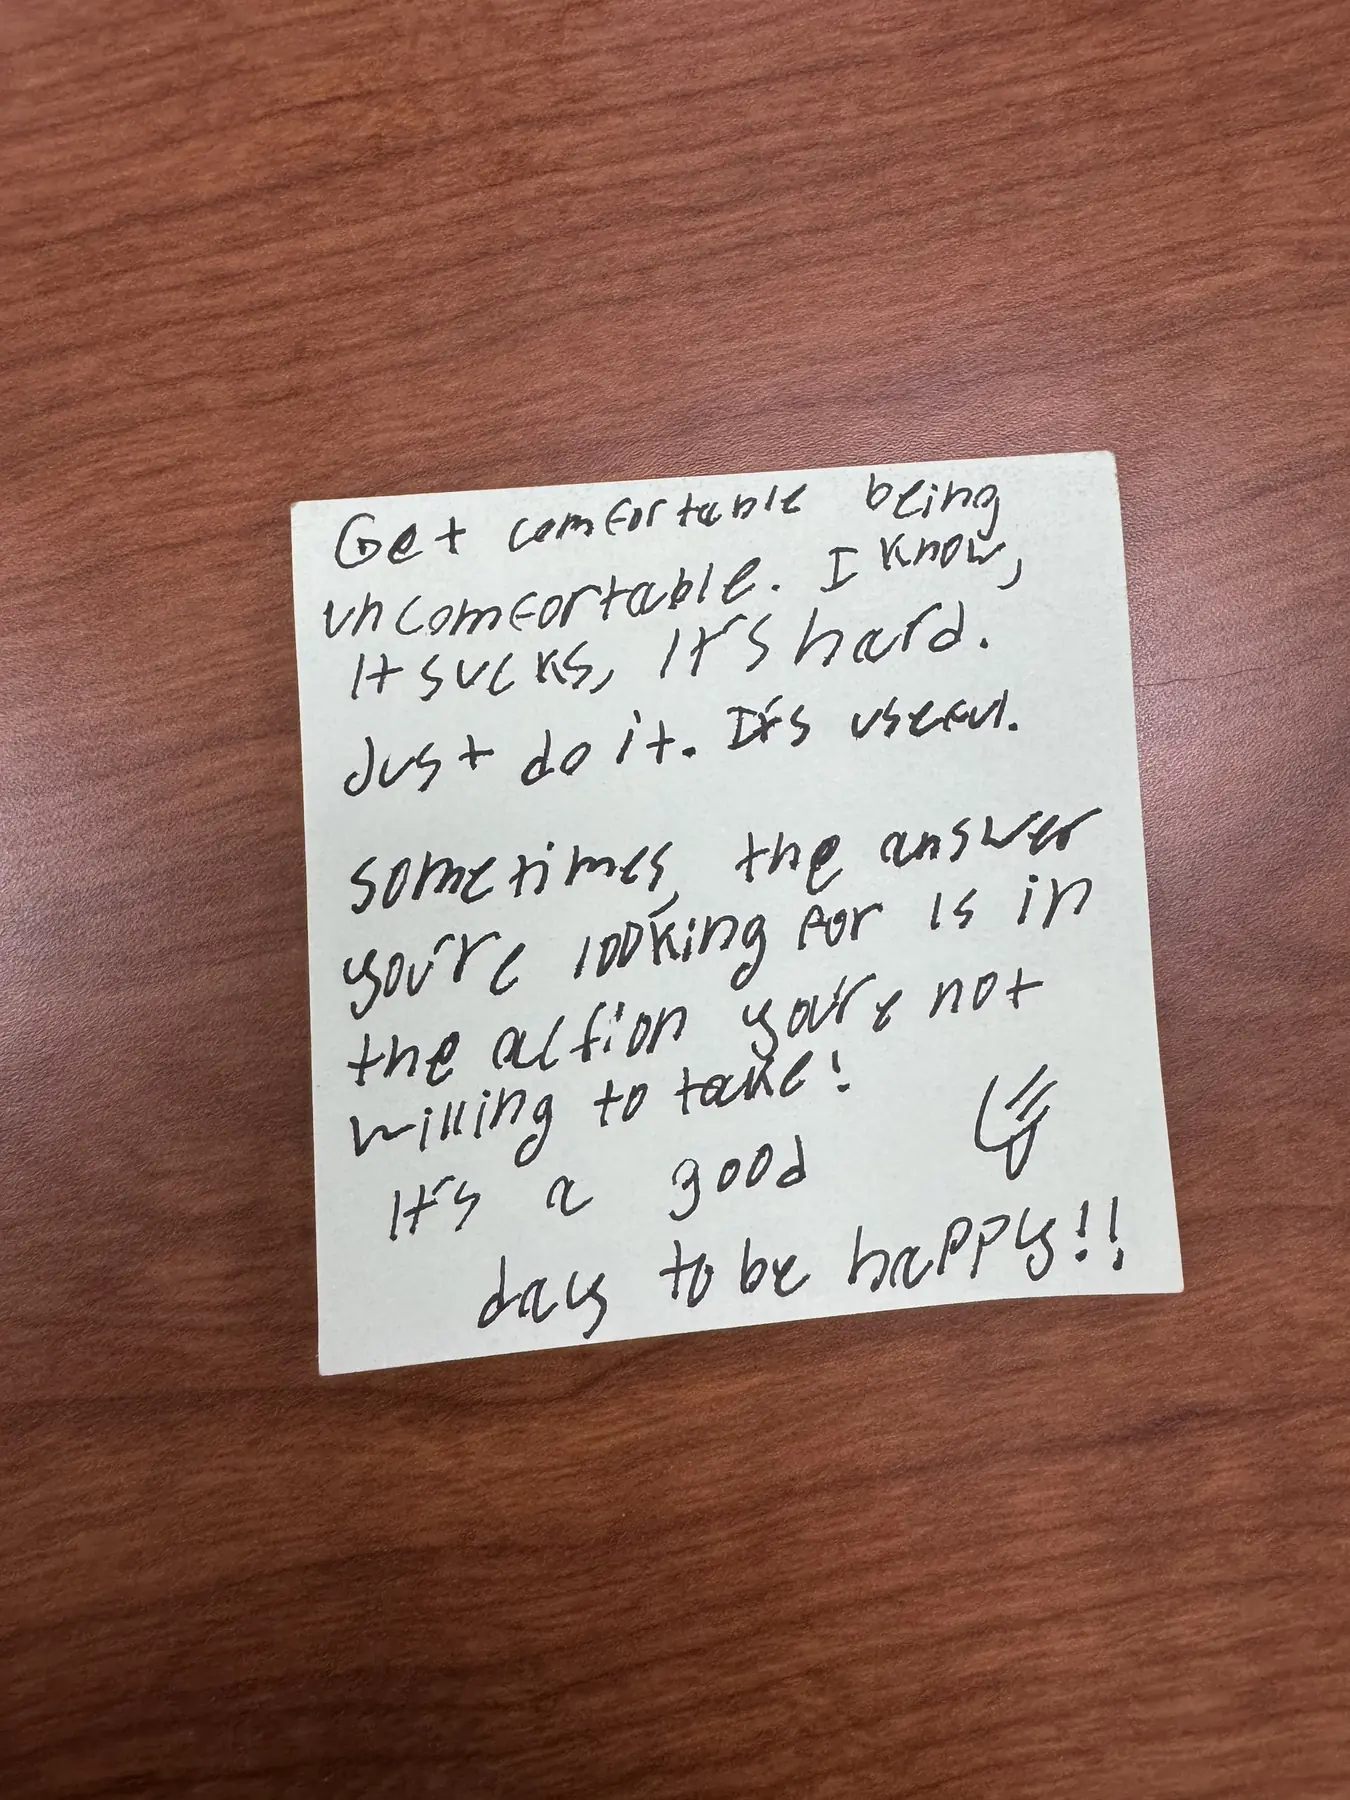 Get comfortable being
uncomfortable. I know,
It sucks, It's hard.
Just do it. It's useful.
sometimes, the answer
you're looking for is in
the action you're not
willing to take!
It's a good
day to be happy!!